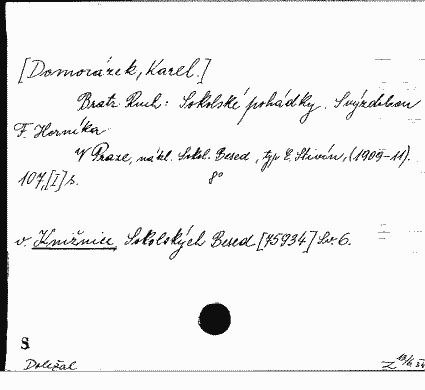 [Domorázek, Karel.]
Bratr Ruch: Sokolské pohádky. S výzdobou
F. Horníka
V Praze, nákl. Sokol. Besed, typ. E. Stivín, (1909-11).
107,[I] s. 8°
v. Knižnice Sokolských Besed [75934] Sv. 6.
S
Doležal